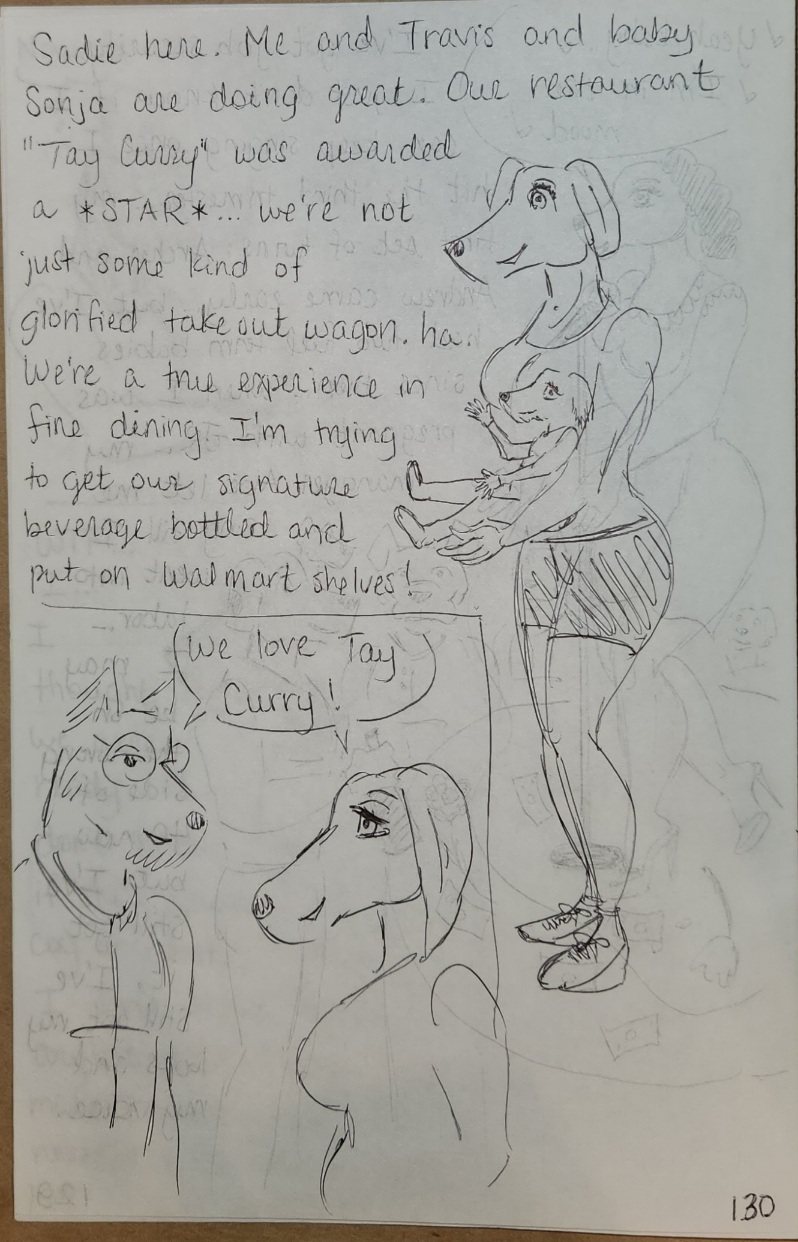 Sadie here. Me and Travis and baby
Sonja are doing great. Our restaurant
"Tay Curry" was awarded
a *STAR*... we're not
just some kind of
glorified takeout wagon. ha.
We're a true experience in
fine dining. I'm trying
to get our signature
beverage bottled and
put on Walmart shelves!
We love Tay
Curry!
130